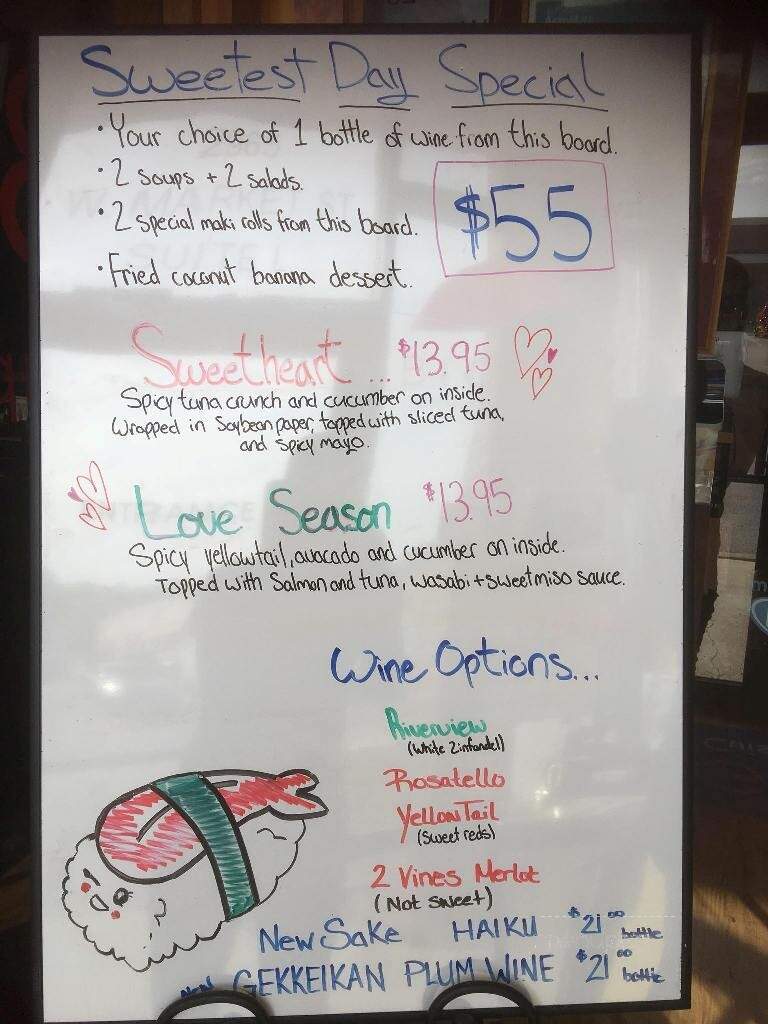 Sweetest Day Special
• Your choice of 1 bottle of wine from this board.
• 2 soups + 2 salads.
• 2 special maki rolls from this board.
$55
• Fried coconut banana dessert.
Sweetheart ... $13.95
Spicy tuna crunch and cucumber on inside.
Wrapped in Soybean paper, topped with sliced tuna,
and spicy mayo.
Love Season $13.95
Spicy yellowtail, avocado and cucumber on inside.
Topped with Salmon and tuna, wasabi + sweet miso sauce.
Wine Options...
Riverview
(White Zinfandel)
Rosatello
Yellow Tail
(Sweet reds)
2 Vines Merlot
(Not sweet)
New Sake HAIKU $21.00 bottle
New GEKKEIKAN PLUM WINE $21.00 bottle